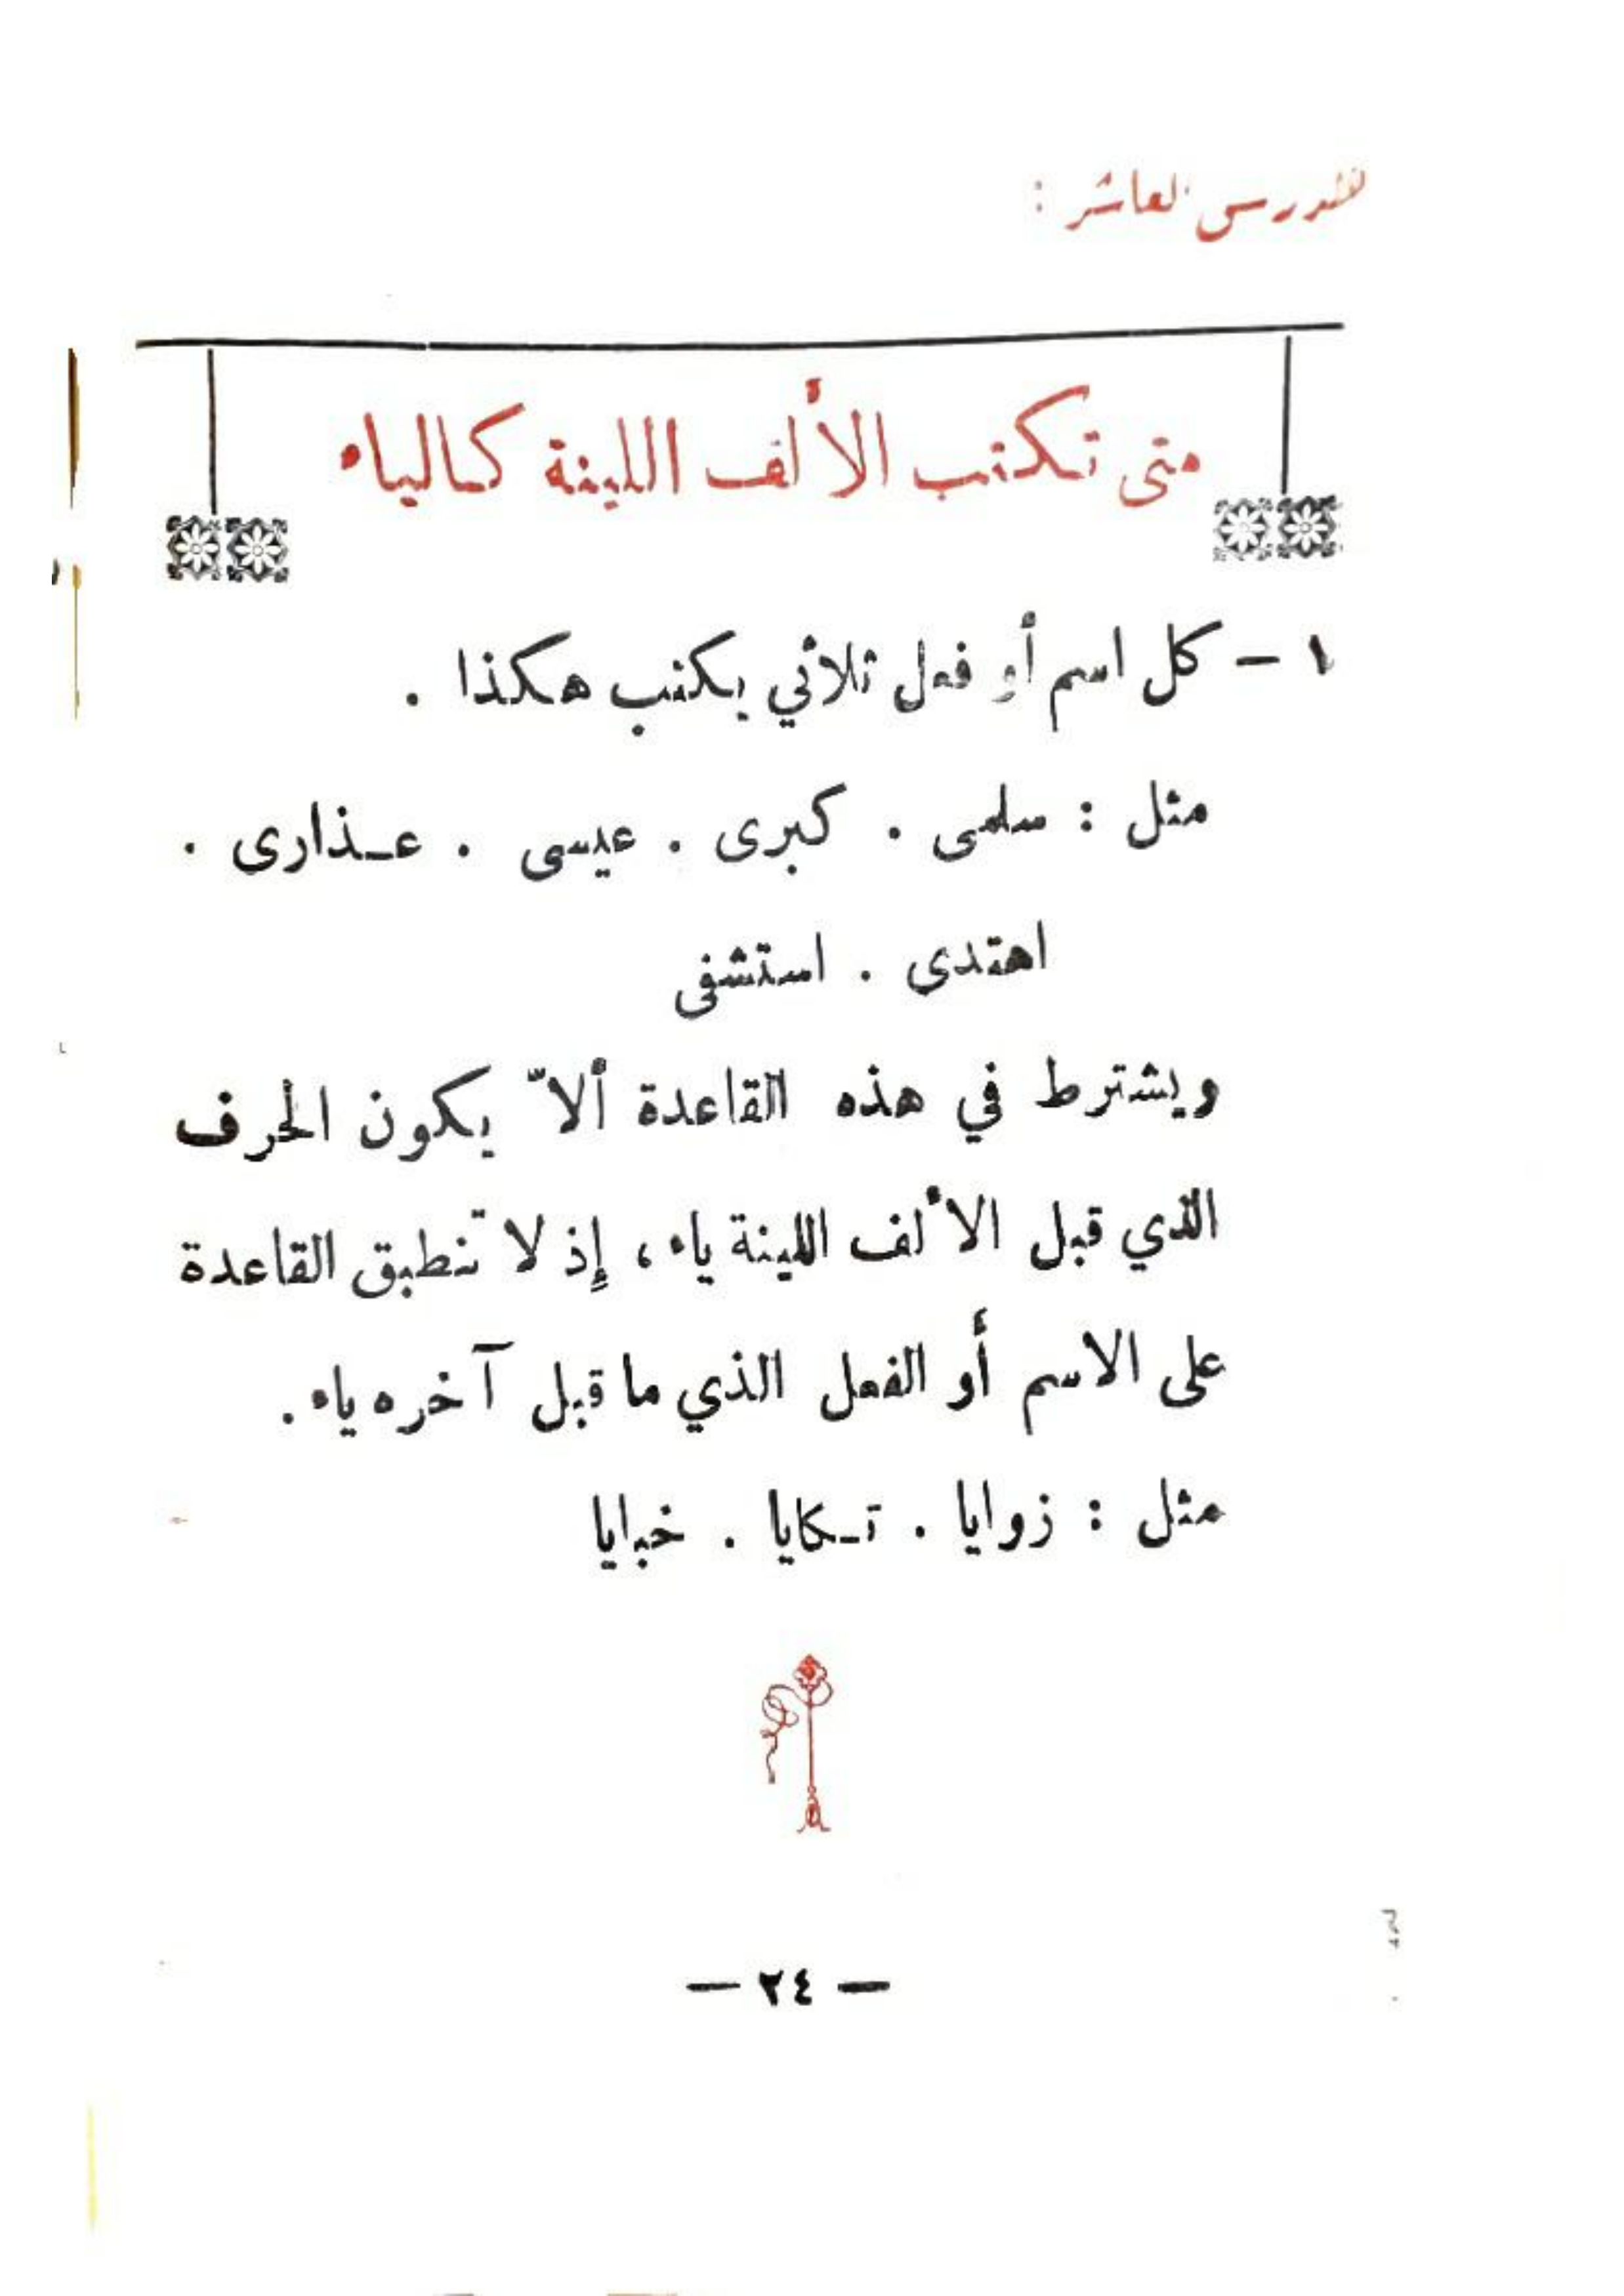 الدرس العاشر :
متى تكتب الألف اللينة كالياء
١ - كل اسم أو فعل ثلاثي يكتب هكذا .
مثل : سلمى . كبرى . عيسى . عـذارى .
اهتدى . استشفى
ويشترط في هذه القاعدة ألاّ يكون الحرف
الذي قبل الألف اللينة ياء ، إذ لا تنطبق القاعدة
على الاسم أو الفعل الذي ما قبل آخره ياء .
مثل : زوايا . تـكايا . خبايا
— ٢٤ —